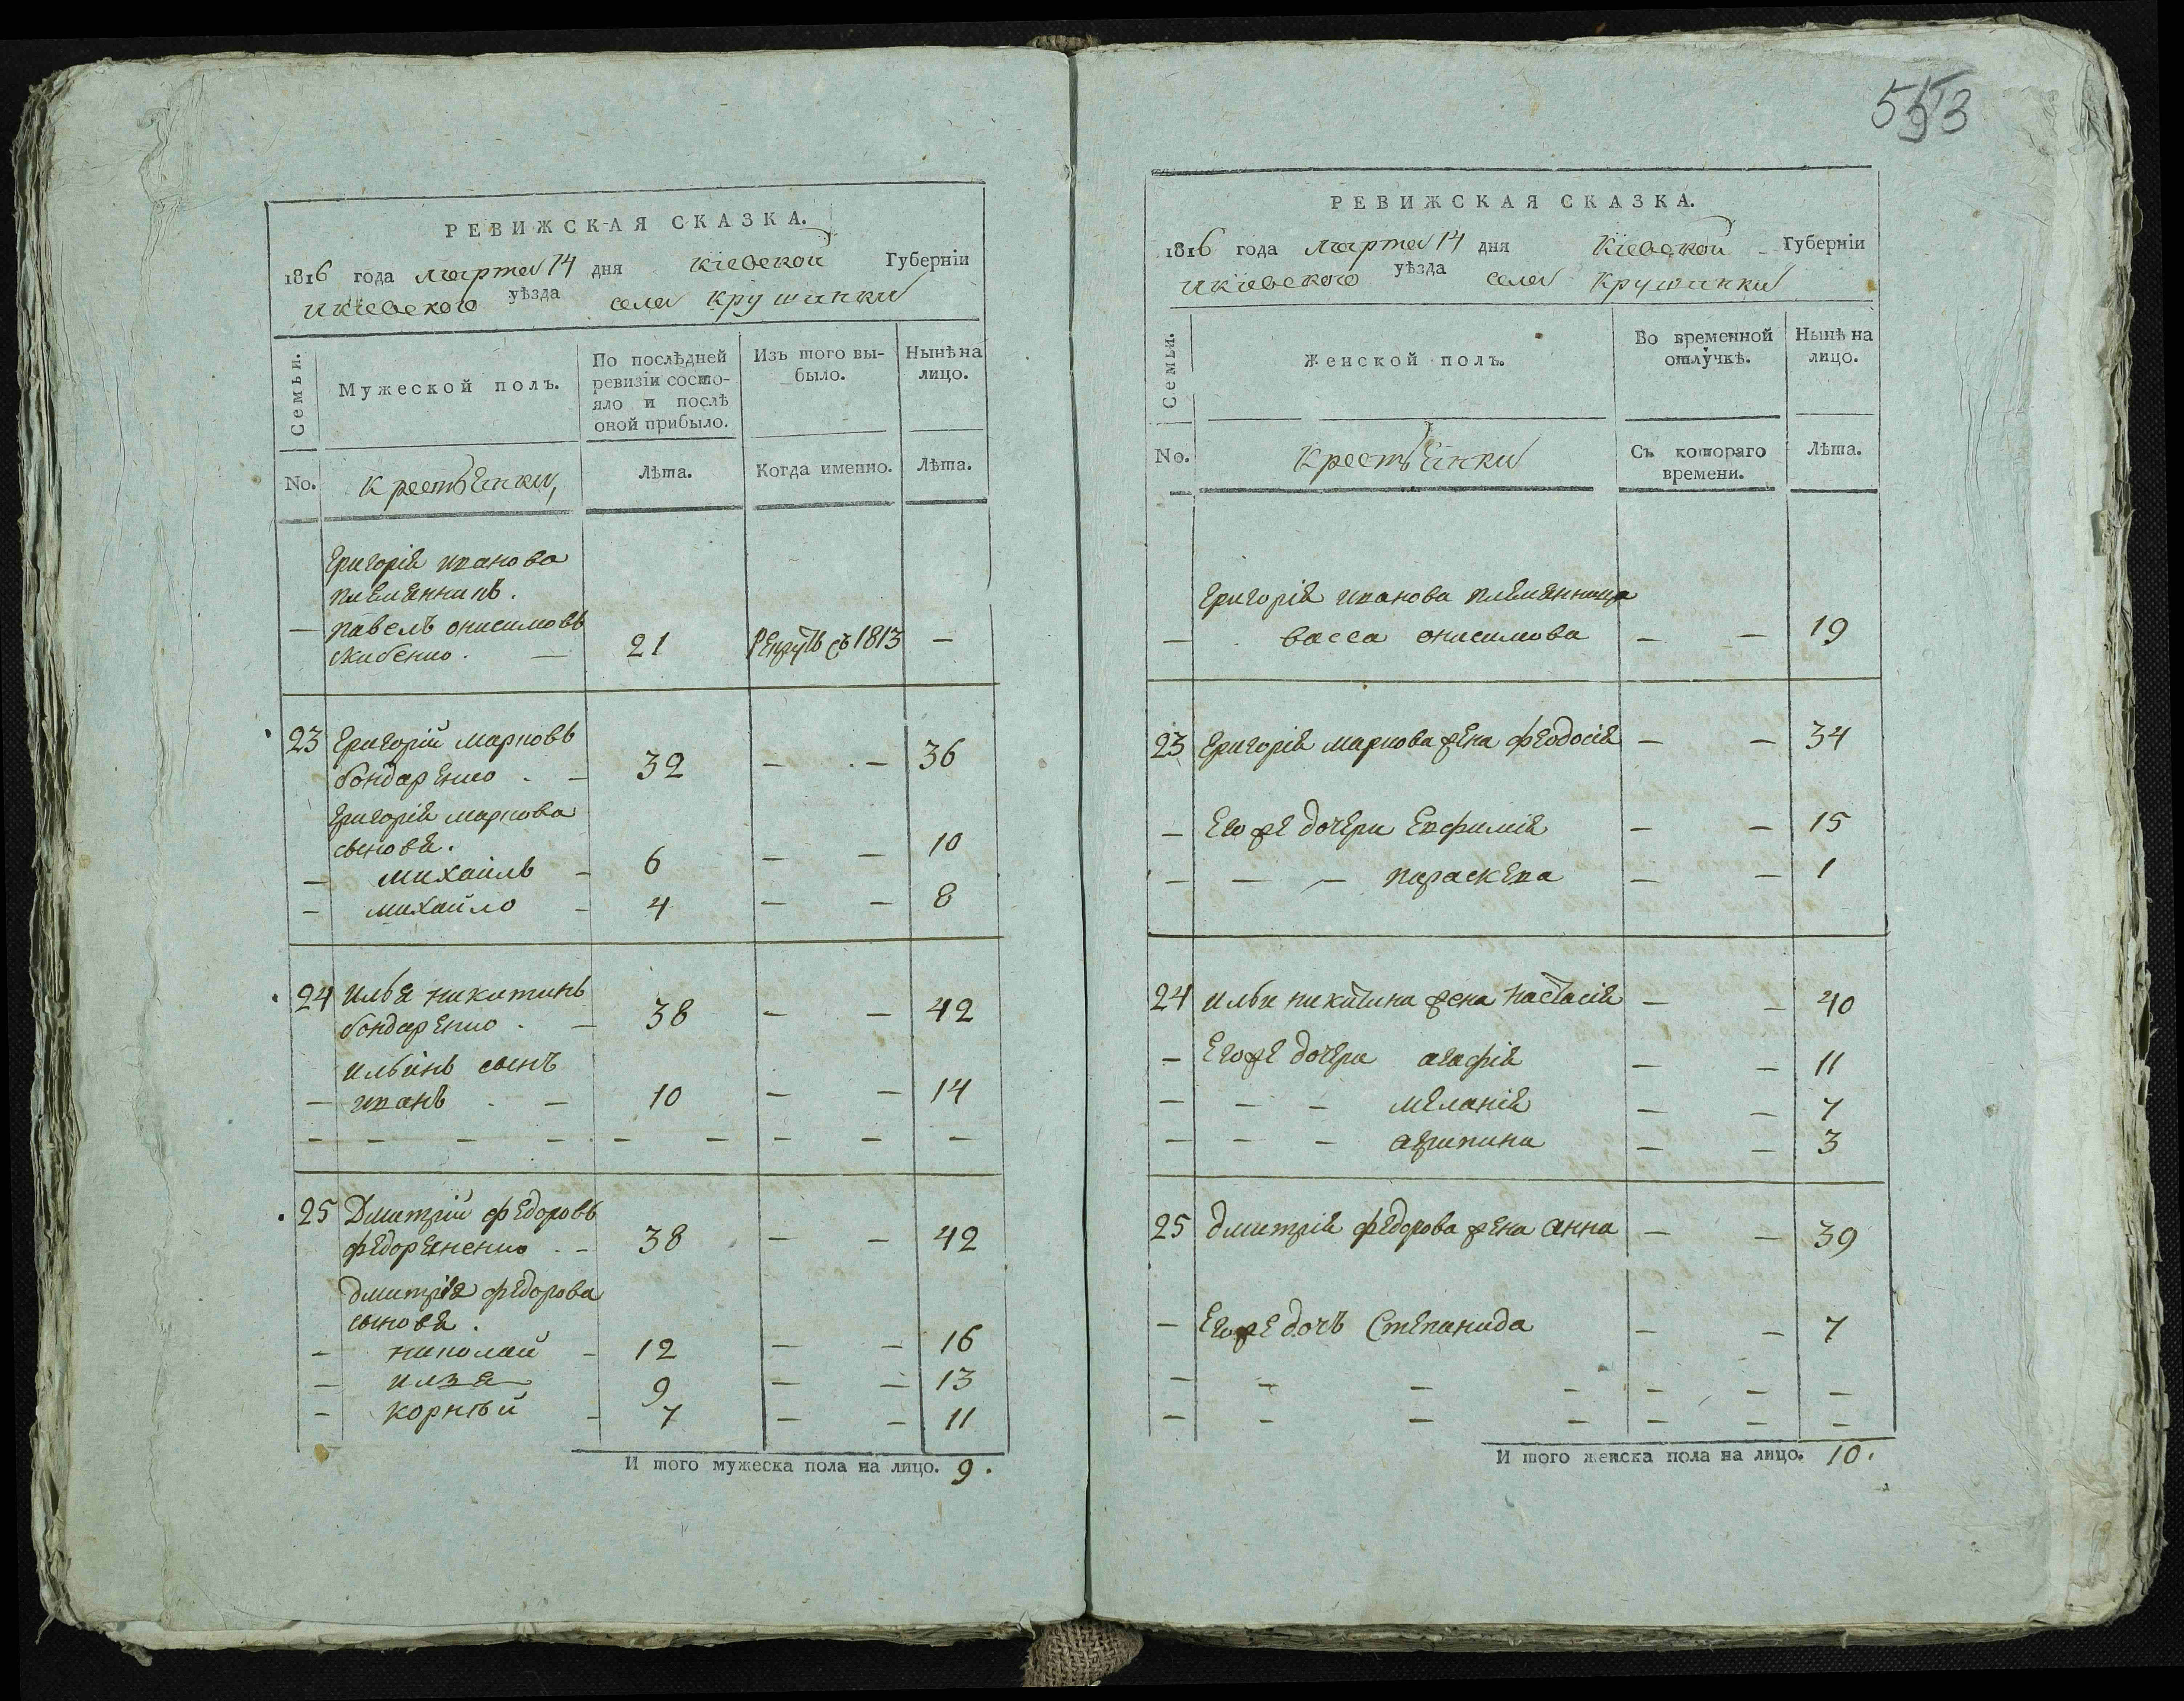 РЕВИЖСКАЯ СКАЗКА.
1816 года марта 14 дня Кіевской Губерніи
Икіевского уѣзда села Крушинки
Семьи.
Мужеской полъ.
По послѣдней ревизіи состояло и послѣ оной прибыло.
Изъ того выбыло.
Нынѣ на лицо.
No.
Крестьянки,
Лѣта.
Когда именно.
Лѣта.
Григорія иванова
племянникъ.
— павелъ онисимовъ
скибенко. — 21 Рекрутъ съ 1813 —
23 Григорій марковъ
бондаренко . — 32 — . — 36
Григорія маркова
сыновя.
— михаилъ — 6 — — 10
— михайло — 4 — — 8
24 илья никитинъ
бондаренко . — 38 — — 42
ильинъ сынъ
— иванъ . — 10 — — 14
— — — — — — — — —
25 Дмитрий федоровъ
федоряненко . — 38 — — 42
дмитрія федорова
сыновя .
— николай — 12 — — 16
— илья 9 — — 13
— корнѣй — 7 — — 11
И того мужеска пола на лицо. 9.
553
РЕВИЖСКАЯ СКАЗКА.
1816 года марта 14 дня Кіевской Губерніи
Икіевского уѣзда села Крушинки
Семьи.
Женской полъ.
Во временной отлучкѣ.
Нынѣ на лицо.
No.
Крестьянки
Съ котораго времени.
Лѣта.
Григорія иванова племянница
— васса онисимова — — 19
23 Григорія маркова жена феодосія — — 34
— Его же дочери Евфимія — — 15
— — — параскева — — 1
24 ильи никитина жена настасія — — 40
— Его же дочери агафія — — 11
— — — меланія — — 7
— — — агрипина — — 3
25 дмитрія федорова жена анна — — 39
— Его же дочь Степанида — — 7
— — — — — — —
— — — — — — —
И того женска пола на лицо. 10.